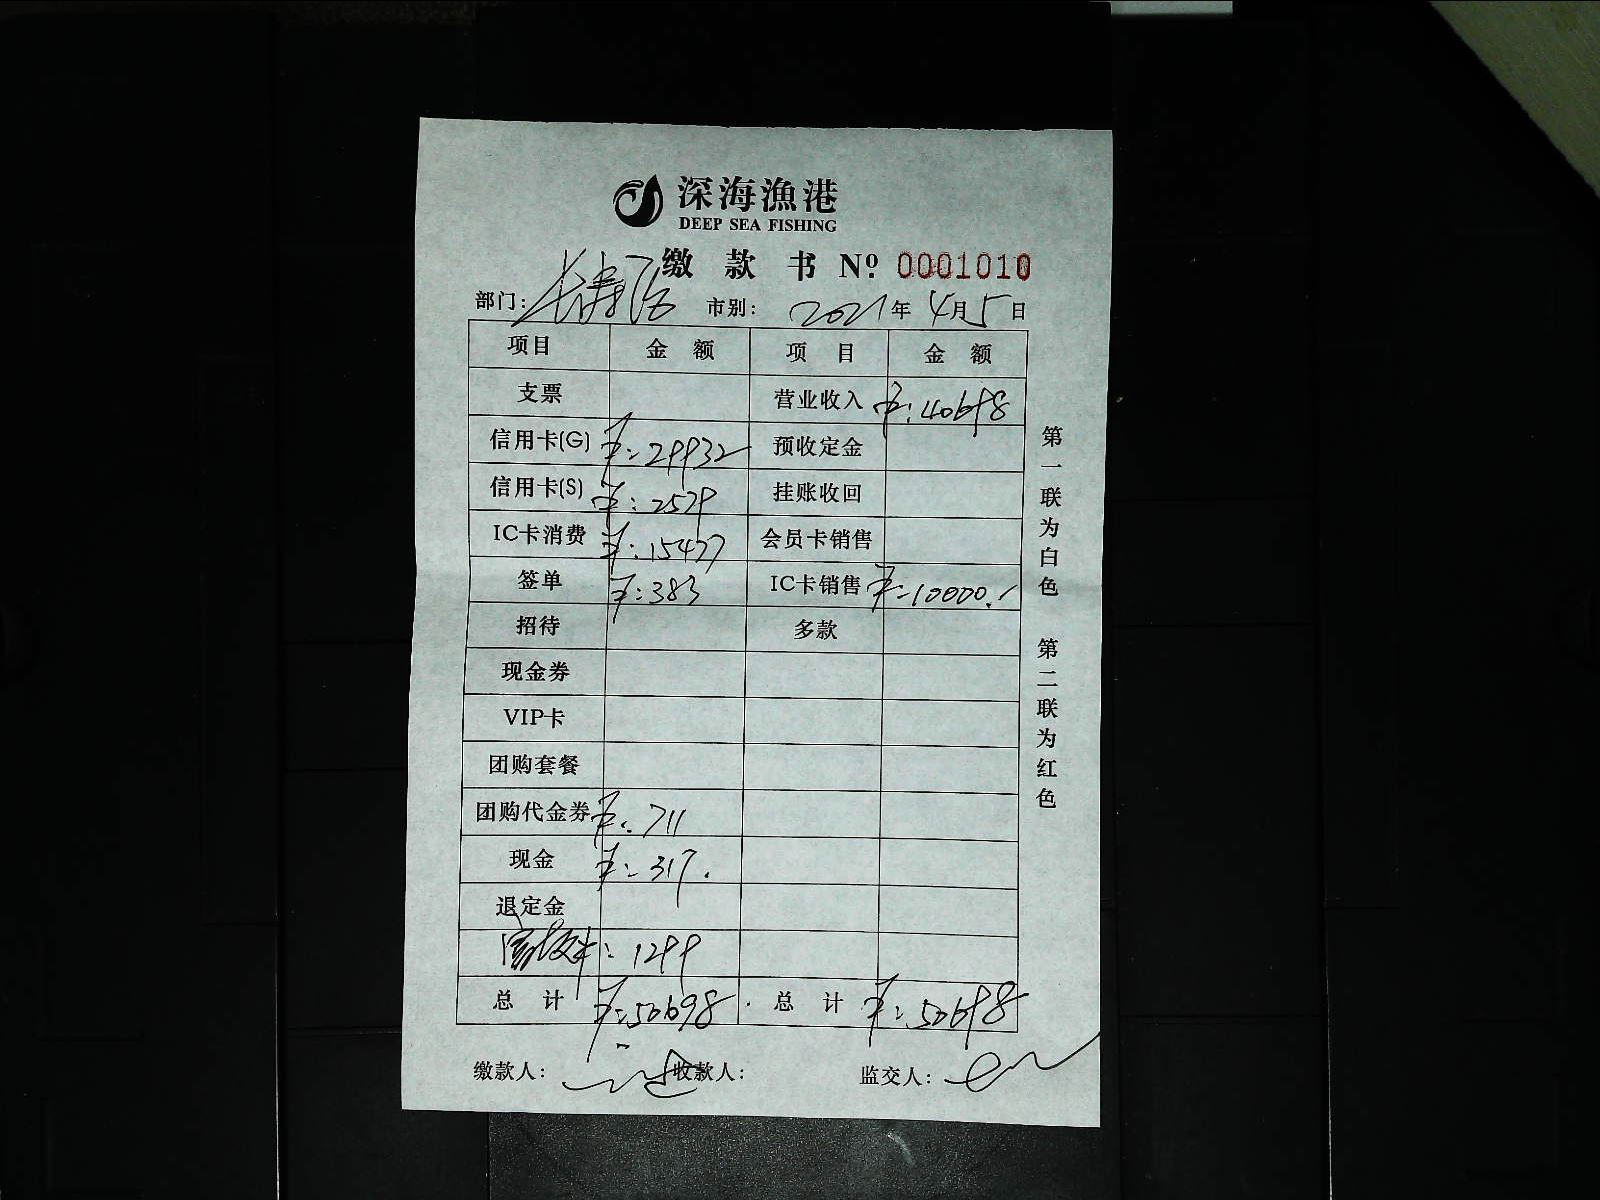 深海漁港
DEEP SEA FISHING
缴款书 Nº 0001010
部门: 长寿路 市别: 2021年4月5日
项目 金额 项目 金额
支票 营业收入 ¥:40698
信用卡(G) ¥:29932 预收定金
信用卡(S) ¥:2579 挂账收回
IC卡消费 ¥:15477 会员卡销售
签单 ¥:383 IC卡销售 ¥:10000.
招待 多款
现金券
VIP卡
团购套餐
团购代金券 ¥:711
现金 ¥:317.
退定金
卡: 1299
总计 ¥:50698 总计 ¥:50698
缴款人: 收款人: 监交人:
第一联为白色 第二联为红色